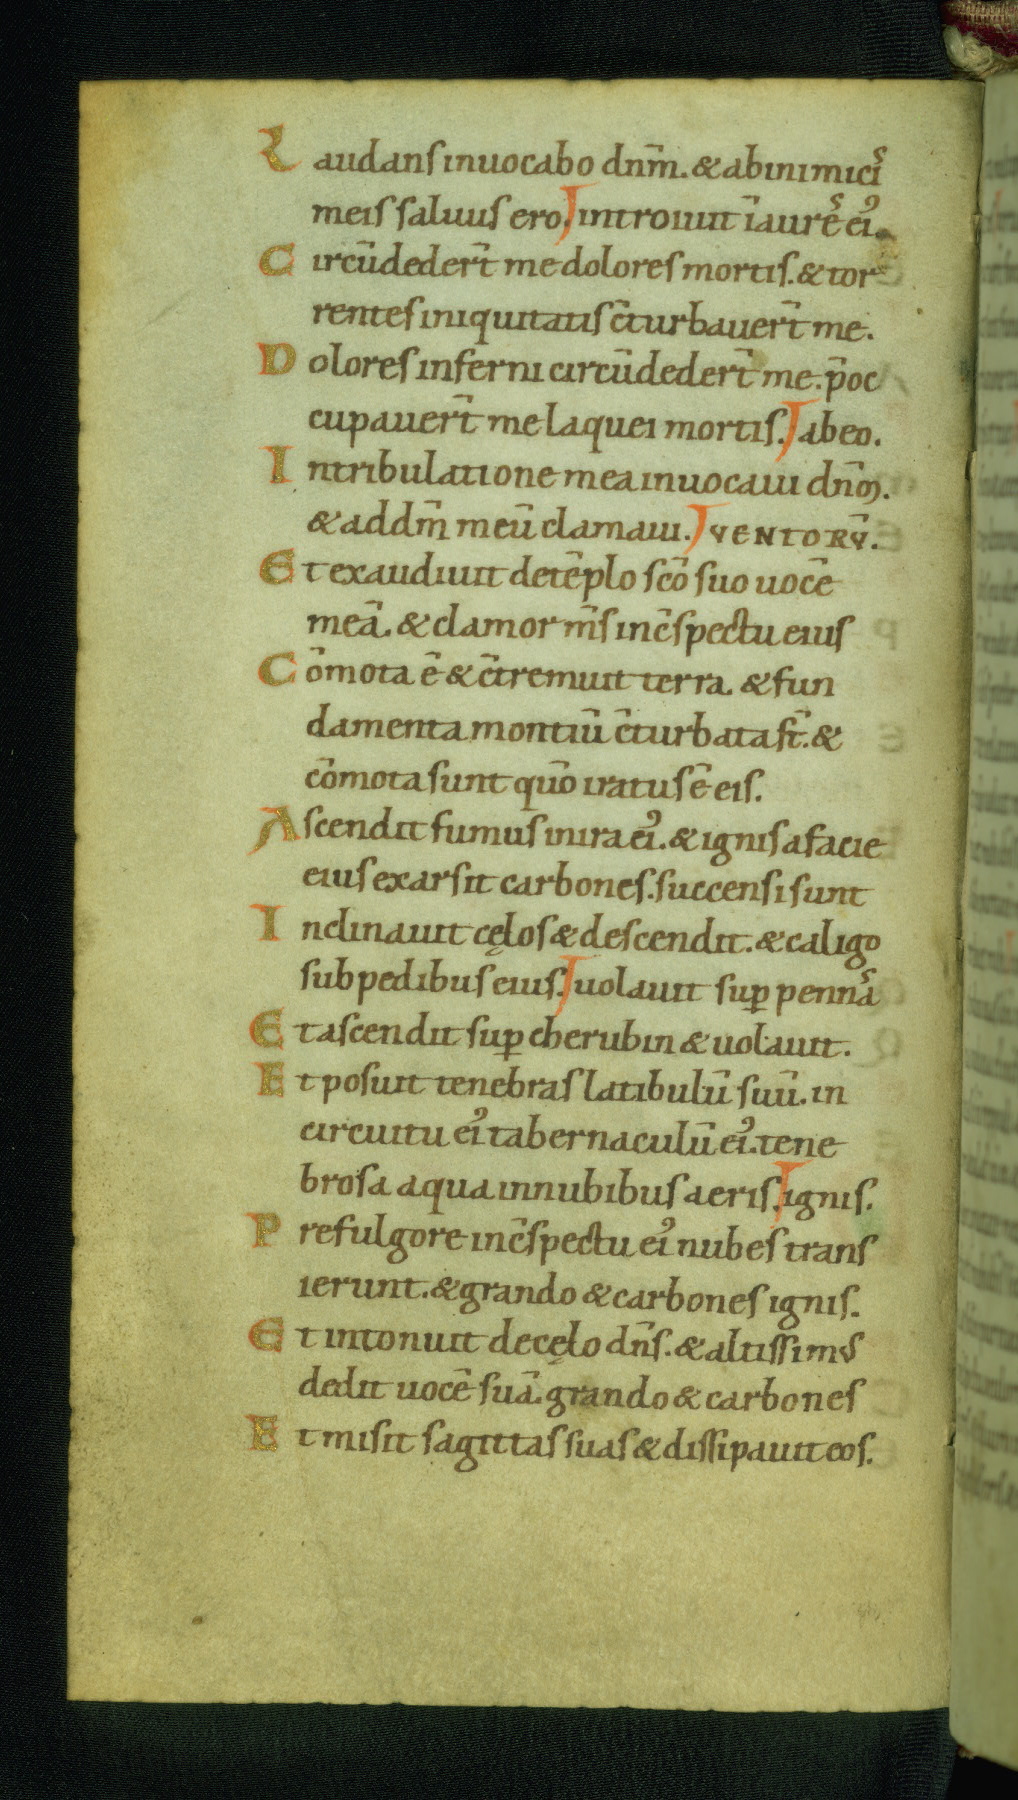 Laudans inuocabo dñm. & ab inimicis
meis saluus ero. introiuit ī aures ei᾽.
Circūdedert̄ me dolores mortis. & tor
rentes iniquitatis c̄turbauert̄ me.
Dolores inferni circūdedert̄ me. p̄oc
cupauert̄ me laquei mortis. abeo.
In tribulatione mea inuocaui dñm.
& ad dm̄ meū clamaui. VENTORV̄.
Et exaudiuit de tēplo sc̄o suo uocē
meā. & clamor m̄s in c̄spectu eius
Cōmota ē & c̄tremuit terra. & fun
damenta montiū c̄turbata st̄. &
cōmota sunt qūo iratus ē eis.
Ascendit fumus in ira ei᾽. & ignis a facie
eius exarsit carbones. succensi sunt
Inclinauit cęlos & descendit. & caligo
sub pedibus eius. uolauit sup̱ pennas
Et ascendit sup̱ cherubin & uolauit.
Et posuit tenebras latibulū suū. in
circuitu ei᾽ tabernaculū ei᾽. tene
brosa aqua in nubibus aeris. ignis.
Pre fulgore in c̄spectu ei᾽ nubes trans
ierunt. & grando & carbones ignis.
Et intonuit de cęlo dñs. & altissimus
dedit uocē suā. grando & carbones
Et misit sagittas suas & dissipauit eos.